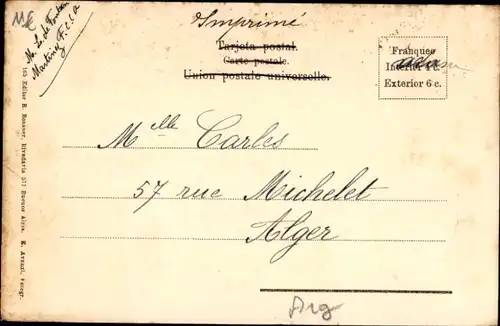 Imprimé
Tarjeta postal.
Carte postale.
Union postale universelle.
Franqueo
Interior 4 c.
Exterior 6 c.
Mlle Carles
57 rue Michelet
Alger
Arg
Martinez F.C.C.A
165 Editor R. Rosauer, Rivadavia 571 Buenos Aires. E. Avanzi, Fotogr.